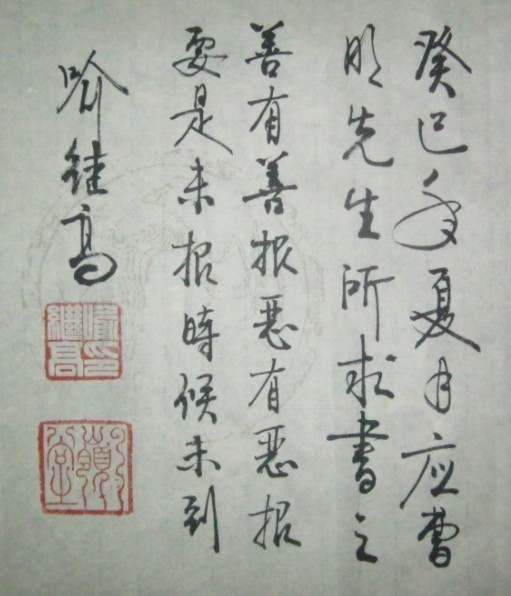 癸巳年夏月应曹
明先生所求書之
善有善报恶有恶报
要是未报時候未到
喻继高
喻印繼高